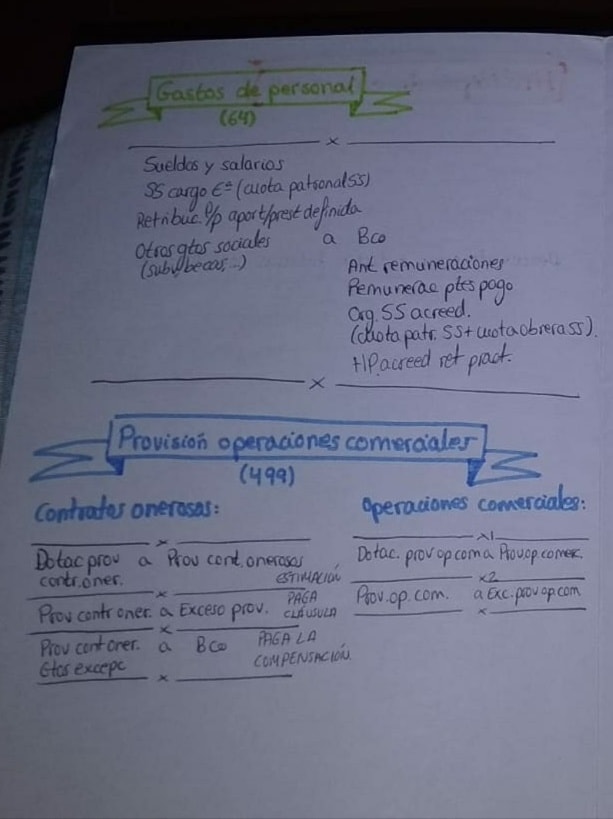 Gastos de personal
(64)
x
Sueldos y salarios
SS cargo Eª (cuota patronal SS)
Retribuc. l/p aport/prest definida
Otros gtos sociales a Bco
(subv, becas,...)
Ant remuneraciones
Remunerac ptes pago
Org. SS acreed.
(cuota patr. SS + cuota obrera SS).
HP acreed ret pract.
x
Provisión operaciones comerciales
(499)
Contratos onerosos:
x
Dotac prov a Prov cont. onerosos
contr. oner. ESTIMACIÓN
x
Prov contr oner. a Exceso prov. PAGA
CLÁUSULA
x
Prov cont oner. a Bco PAGA LA
Gtos excepc COMPENSACIÓN
x
Operaciones comerciales:
x1
Dotac. prov op com a Prov op. comerc.
x2
Prov. op. com. a Exc. prov op com
x